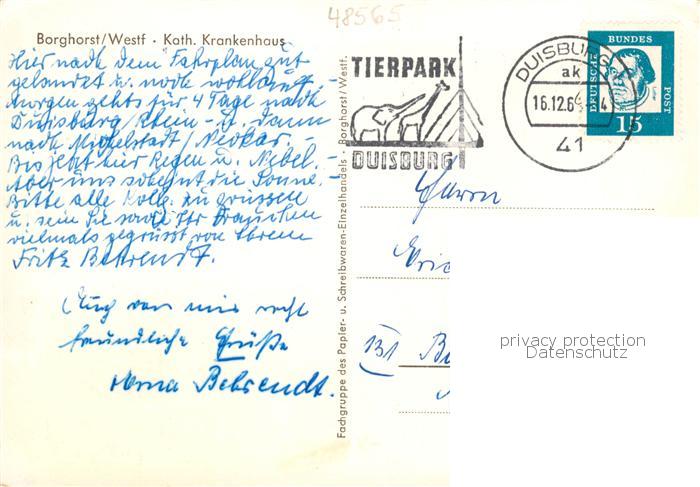 48565
Borghorst/Westf · Kath. Krankenhaus
Hier nach dem Fahrplan gut
gelandet u. noch wohlauf –
morgen gehts für 4 Tage nach
Duisburg/Rhein – u. dann
nach Michelstadt/Neckar. –
Bis jetzt hier Regen u. Nebel. –
Aber uns scheint die Sonne. –
Bitte alle Koll. zu grüssen
u. sein Sie sowie Ihr Frauchen
vielmals gegrüsst von Ihrem
Fritz Behrendt.
Auch von mir recht
freundliche Grüße
Behrendt.
Fachgruppe des Papier- u. Schreibwaren-Einzelhandels · Borghorst/Westf.
TIERPARK
DUISBURG
DUISBURG
ak
16.12.6
4
41
DEUTSCHE
BUNDES
POST
15
Herrn
privacy protection
Datenschutz